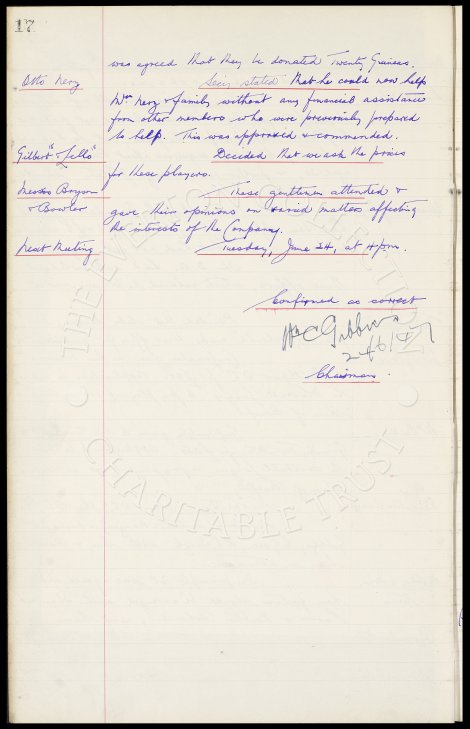 17
was agreed that they be donated Twenty Guineas.
Otto Nerz
Secy stated that he could now help
Mr Nerz & family without any financial assistance
from other members who were previously prepared
to help. This was approved & commended.
Gilbert" & "Lello"
Decided that we ask the prices
for these players.
Messrs
& Bowler
These gentlemen attended &
gave their opinions on varied matters affecting
the interests of the Company.
Next Meeting
Tuesday, June 24, at 4pm.
Confirmed as correct
Wm C Gibbins
24/6/47
Chairman.
THE EVERTON COLLECTION
CHARITABLE TRUST